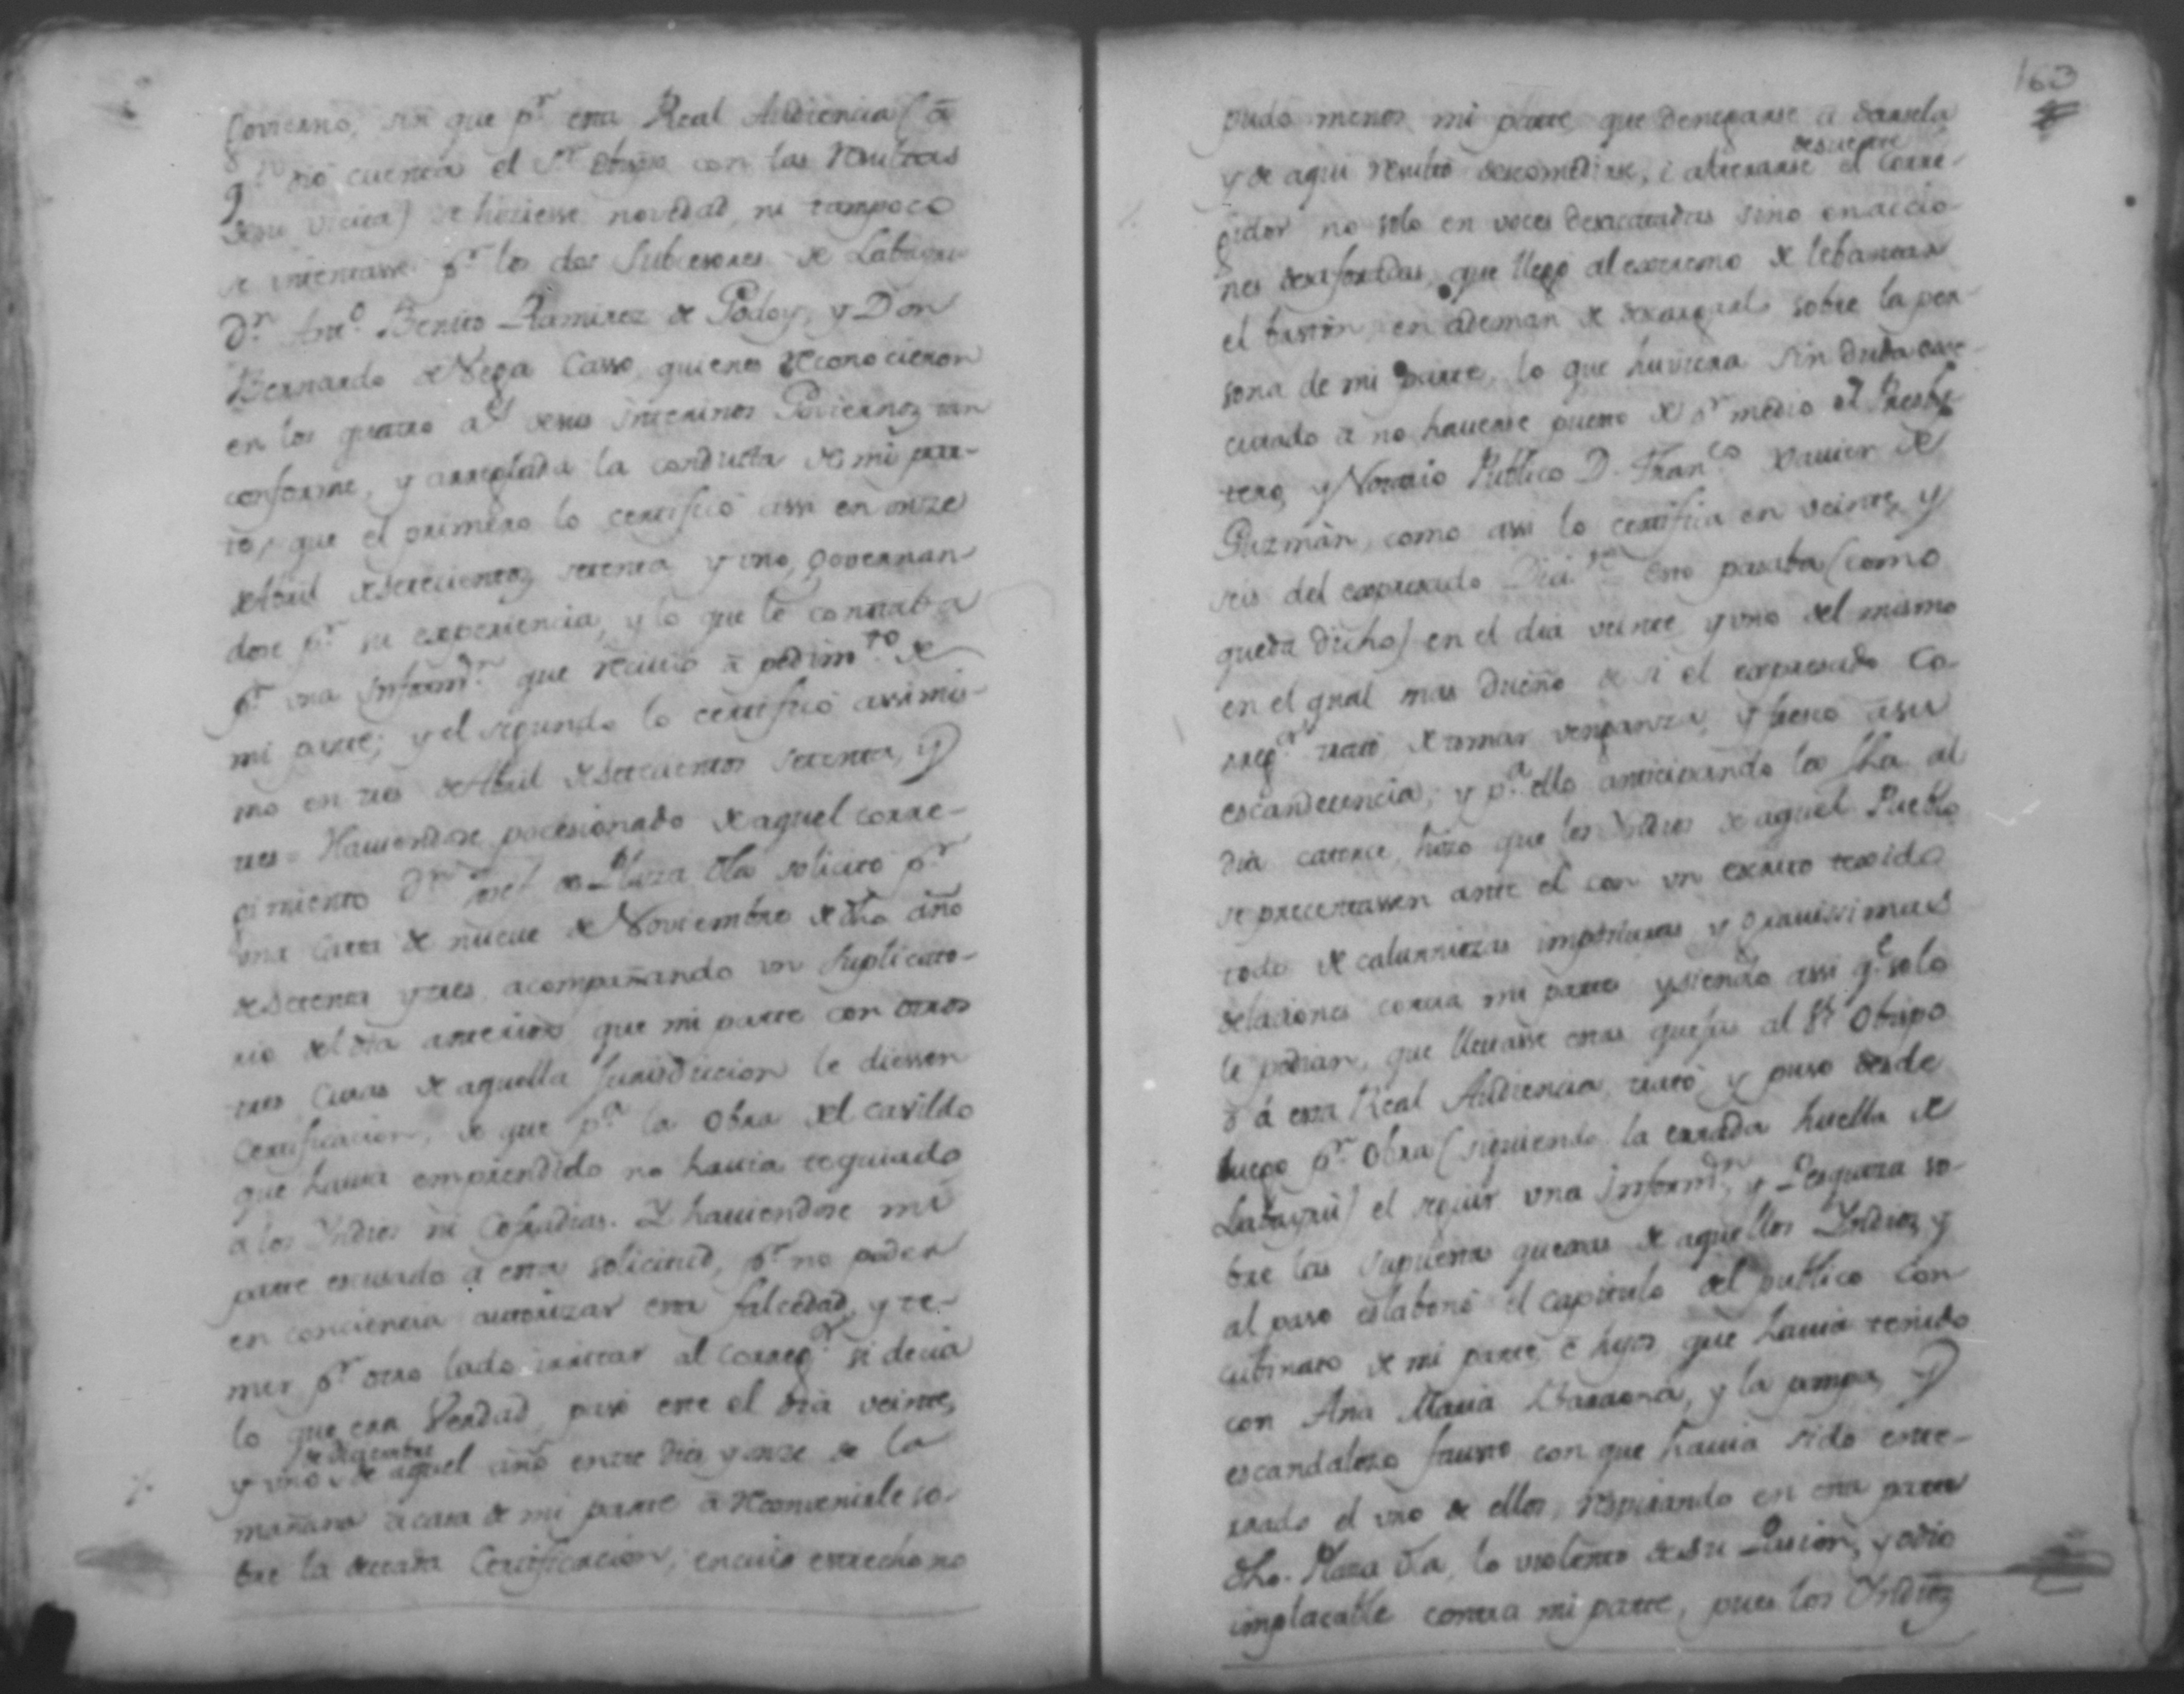 Govierno, sin que p.r esta Real Audiencia (â
q.n dió cuenta el S.r Obispo con las resultas
desu vicita) se hiziesse novedad, ni tampoco
se intentasse p.r los dos Subcesores de Labayru
D.n Ant.o Benito Ramirez de Godoy, y Don
Bernardo de Vega Casso, quienes reconocieron
en los quatro a.s desus interinos Goviernos tan
conforme, y arreglada la conducta de mi par-
te, que el primero lo certificó assi en onze
de Abril de setecientos setenta y uno, governan-
dose p.r su experiencia, y lo que le constaba
p.r una Inform.n que reciuió â pedim.to de
mi parte; y el segundo lo certificó assimis-
mo en tres de Abril de setecientos setenta, y
tres = Hauiendose pocesionado de aquel corre-
gimiento D.n Josef de Plaza Ola solicitó p.r
una Carta de nueue de Noviembre de dho año
de setenta y tres, acompañando un suplicato-
rio del dia anterior que mi parte con otros
tres Curas de aquella Jurisdiccion le diessen
Certificacion, de que p.a la Obra del Cavildo
que hauia emprendido no hauia
a los Yndios ni Cofradias. Y hauiendose mi
parte escusado a esta solicitud, p.r no poder
en conciencia autorizar esta falcedad, y te-
mer p.r otro lado irritar al Correg.or si decia
lo que era Verdad, pasó este el dia veinte,
de Diciembre
y uno de aquel año entre dies y onze de la
mañana a casa de mi parte â reconvenirle so-
bre la Certificacion, en cuio estrecho no
163
pudo menos mi parte que denegarse a darsela
desuerte
y de aqui resultó descomedirse, i alterarse el Corre-
gidor no solo en voces desacatadas sino en accio-
nes desaforadas, que llegó al extremo de lebantar
el baston en ademan de descargarlo sobre la per-
sona de mi parte, lo que huviera sin duda exe-
cutado a no hauerse puesto de p.r medio el Presbi-
tero, y Notario Publico D. Fran.co Xauier de
Guzmàn, como assi lo certifica en veinte, y
seis del expresado Dici.re Esto pasaba (como
queda dicho) en el dia veinte y uno del mismo
en el qual mas dueño de si el expresado Co-
rreg.or trató de tomar venganza, y freno asu
escandecencia; y p.a ello anticipando la fha al
dia catorce, hizo que los Yndios de aquel Pueblo
se precentassen ante el con un escrito texido
todo de calumniozas imposturas y grauissimas
delaciones contra mi parte y siendo assi q.e solo
le pedian, que lleuasse estas quejas al S.r Obispo
ò á esta Real Audiencia, trató y puso desde
luego p.r Obra (siguiendo la errada huella de
Labayru) el seguir una Inform.n y Pesquiza so-
bre las supuestas quexas de aquellos Yndios, y
al paso eslabonó el capitulo del publico Con-
cubinato de mi parte, è hijos que hauia tenido
con Ana Maria Baraona, y la pompa, y
escandalozo fausto con que hauia sido ente-
rrado el uno de ellos, respirando en esta parte
dho. Plaza Ola, lo violento desu Pasion, y odio
implacable contra mi parte, pues los Yndios